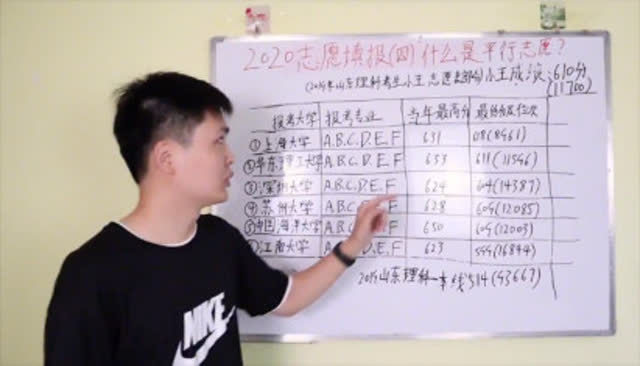 2020志愿填报(四)什么是平行志愿?
(2019年山东理科考生小王 志愿 小王成绩:610分
(11700)
报考大学 报考专业 当年最高分 最低分及位次
①上海大学 A.B.C.D.E.F 631 (8961)
②华东理工大学 A.B.C.D.E.F 633 611(11596)
③深圳大学 A.B.C.D.E.F 624 604(14387)
④苏州大学 A.B.C. E.F 628 609(12085)
⑤中国海洋大学 A.B.C. 650 609(12003)
⑥江南大学 A. .D.E.F 623 599(16844)
2019山东理科一本线514(93667)
NIKE